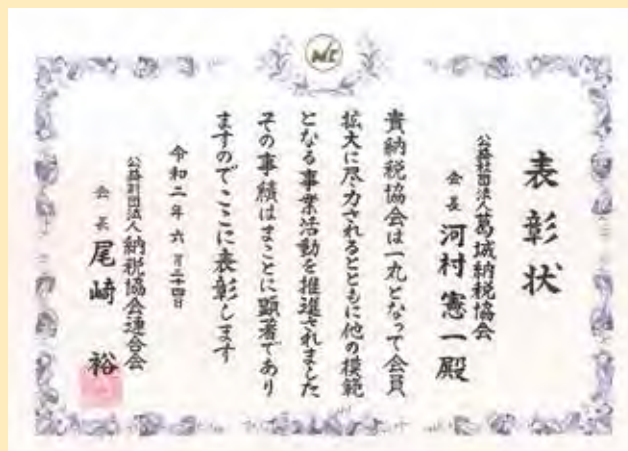 表彰状
公益社団法人葛城納税協会
会長 河村憲一殿
貴納税協会は一丸となって会員
拡大に尽力されるとともに他の模範
となる事業活動を推進されました
その事績はまことに顕著であり
ますのでここに表彰します
令和二年六月二十四日
公益財団法人納税協会連合会
会長 尾崎 裕